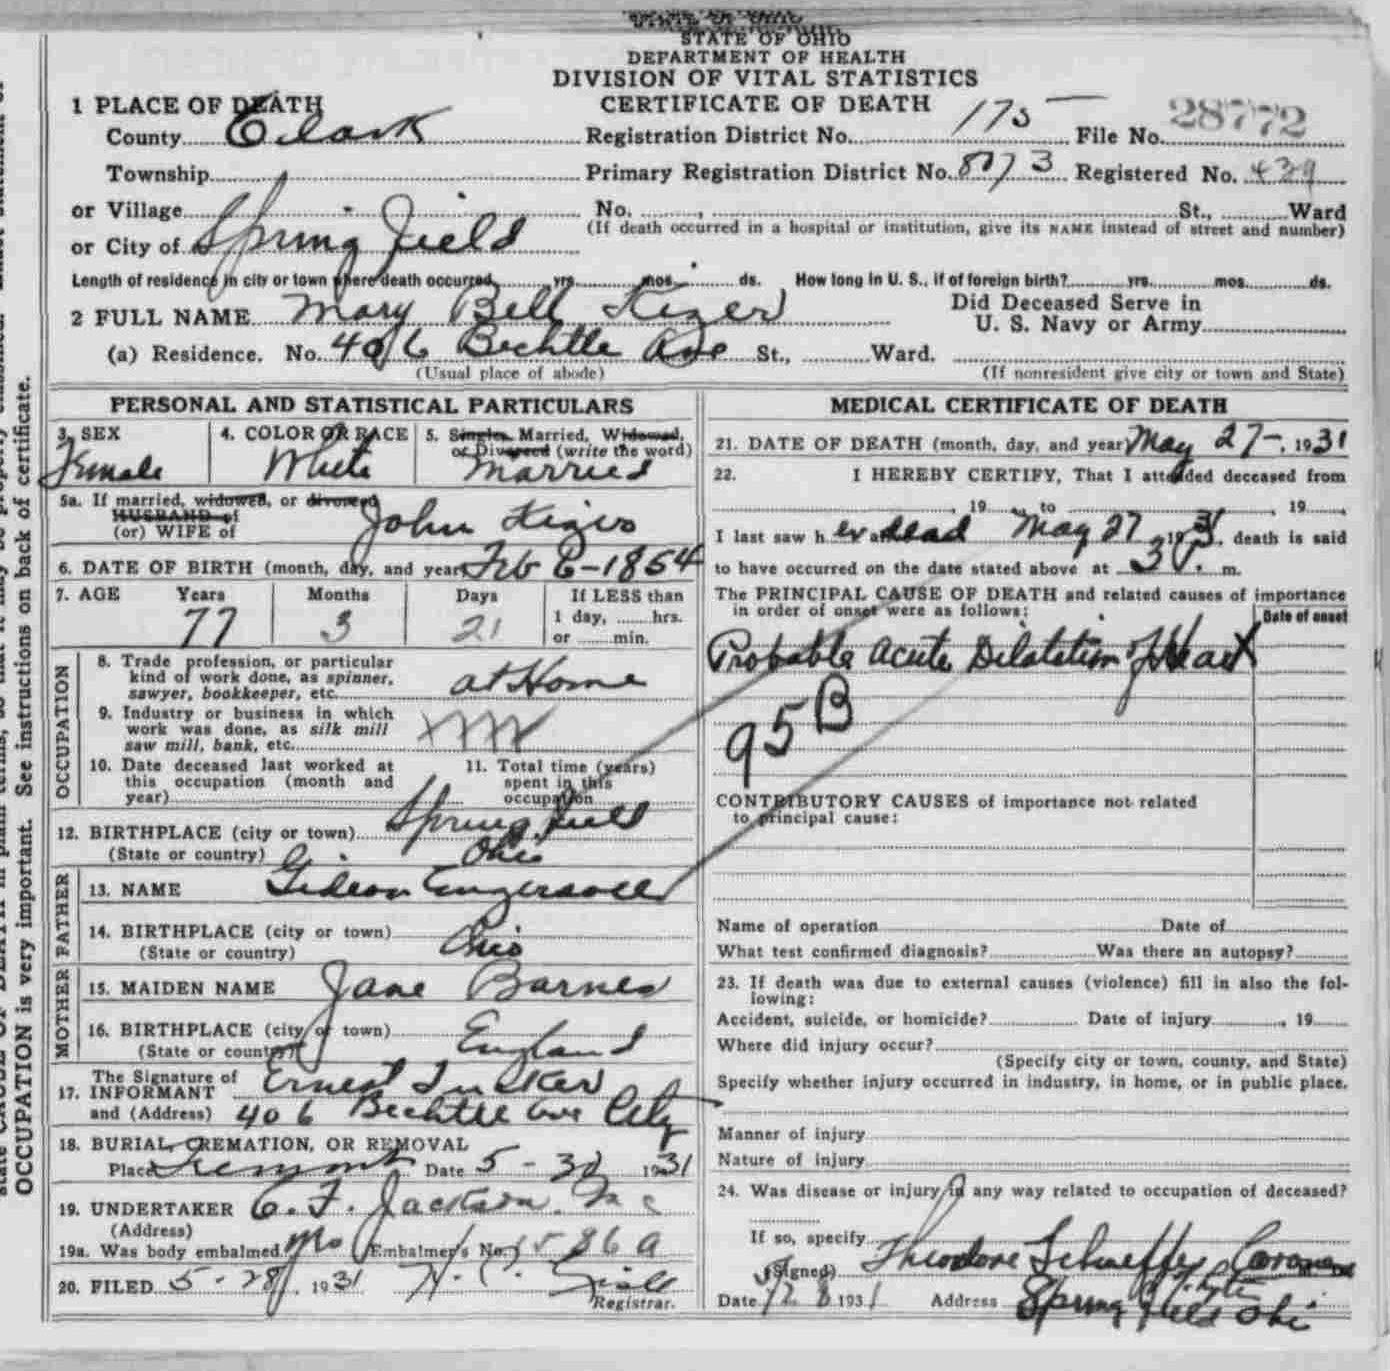 STATE OF OHIO
DEPARTMENT OF HEALTH
DIVISION OF VITAL STATISTICS
CERTIFICATE OF DEATH
1 PLACE OF DEATH
County Clark Registration District No. 175 File No. 28772
Township Primary Registration District No. 8073 Registered No. 439
or Village No. , St., Ward
or City of Springfield (If death occurred in a hospital or institution, give its NAME instead of street and number)
Length of residence in city or town where death occurred yrs. mos. ds. How long in U. S., if of foreign birth? yrs. mos. ds.
2 FULL NAME Mary Bell Kizer Did Deceased Serve in U. S. Navy or Army
(a) Residence. No. 406 Bechtle Ave St., Ward.
(Usual place of abode) (If nonresident give city or town and State)
PERSONAL AND STATISTICAL PARTICULARS
3. SEX Female
4. COLOR OR RACE White
5. Single, Married, Widowed, or Divorced (write the word) Married
5a. If married, widowed, or divorced
HUSBAND of
(or) WIFE of John Kizer
6. DATE OF BIRTH (month, day, and year) Feb 6-1854
7. AGE Years 77 Months 3 Days 21 If LESS than
1 day, hrs.
or min.
OCCUPATION
8. Trade profession, or particular
kind of work done, as spinner,
sawyer, bookkeeper, etc. at Home
9. Industry or business in which
work was done, as silk mill
saw mill, bank, etc.
10. Date deceased last worked at
this occupation (month and
year)
11. Total time (years)
spent in this
occupation
12. BIRTHPLACE (city or town) Springfield
(State or country) Ohio
FATHER
13. NAME Gideon
14. BIRTHPLACE (city or town)
(State or country) Ohio
MOTHER
15. MAIDEN NAME Jane Barnes
16. BIRTHPLACE (city or town)
(State or country) England
17. The Signature of
INFORMANT Ernest
and (Address) 406 Bechtle Ave City
18. BURIAL, CREMATION, OR REMOVAL
Place Date 5-30 1931
19. UNDERTAKER C. F. Jackson
(Address)
19a. Was body embalmed Embalmer's No. 1586 a
20. FILED 5-28, 1931
Registrar.
MEDICAL CERTIFICATE OF DEATH
21. DATE OF DEATH (month, day, and year) May 27-, 1931
22. I HEREBY CERTIFY, That I attended deceased from
, 19 , to , 19 ,
I last saw her dead May 27 1931, death is said
to have occurred on the date stated above at 3 P. m.
The PRINCIPAL CAUSE OF DEATH and related causes of importance
in order of onset were as follows: Date of onset
Probable Acute Dilatation of Heart
95B
CONTRIBUTORY CAUSES of importance not related
to principal cause:
Name of operation Date of
What test confirmed diagnosis? Was there an autopsy?
23. If death was due to external causes (violence) fill in also the fol-
lowing:
Accident, suicide, or homicide? Date of injury , 19
Where did injury occur?
(Specify city or town, county, and State)
Specify whether injury occurred in industry, in home, or in public place.
Manner of injury
Nature of injury
24. Was disease or injury in any way related to occupation of deceased?
If so, specify
(Signed) Theodore Coroner
Date 1931 Address Springfield Ohio
OCCUPATION is very important. See instructions on back of certificate.